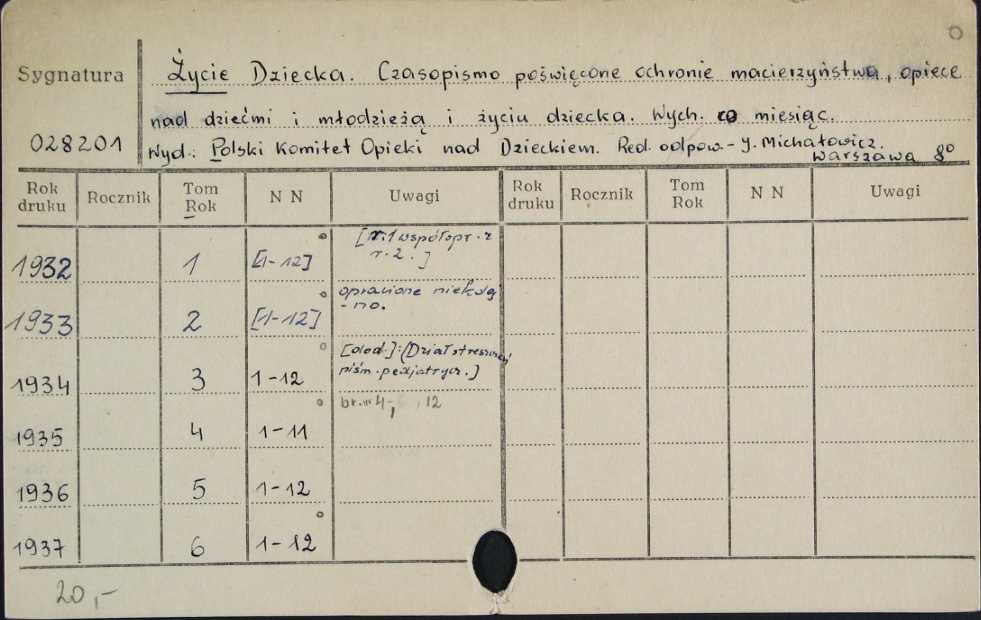 Sygnatura
Życie Dziecka. Czasopismo poświęcone ochronie macierzyństwa, opiece
nad dziećmi i młodzieżą i życiu dziecka. Wych. co miesiąc.
028201
Wyd.: Polski Komitet Opieki nad Dzieckiem. Red. odpow. - J. Michałowicz.
Warszawa 8°
Rok druku Rocznik Tom Rok N N Uwagi Rok druku Rocznik Tom Rok N N Uwagi
1932 1 [1-12] [r.1 współopr. z r.2.]
1933 2 [1-12] oprawione niekolej-no.
1934 3 1-12 [dod.]: (Dział streszczeń piśm. pedjatrycz.)
1935 4 1-11 br. nr 4, 12
1936 5 1-12
1937 6 1-12
20,-